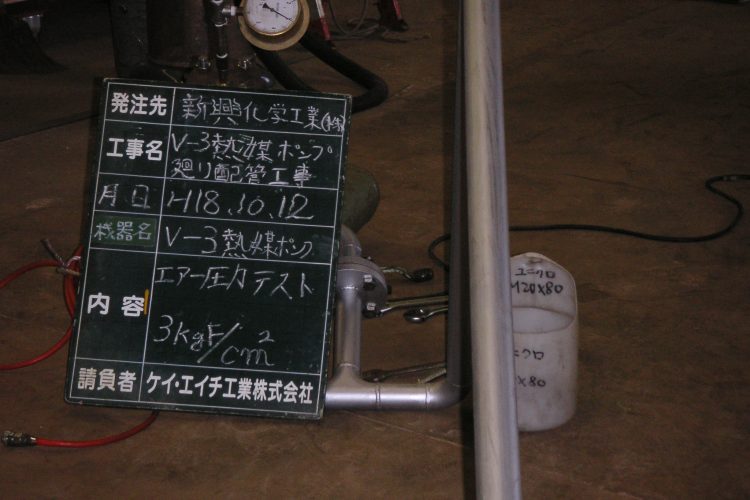 発注先 新興化学工業(株)
工事名 V-3熱媒ポンプ
廻り配管工事
月日 H18.10.12
機器名 V-3熱媒ポンプ
内容 エアー圧力テスト
3kgf/cm²
請負者 ケイ・エイチ工業株式会社
ユニクロ
M20×80
ニクロ
×80